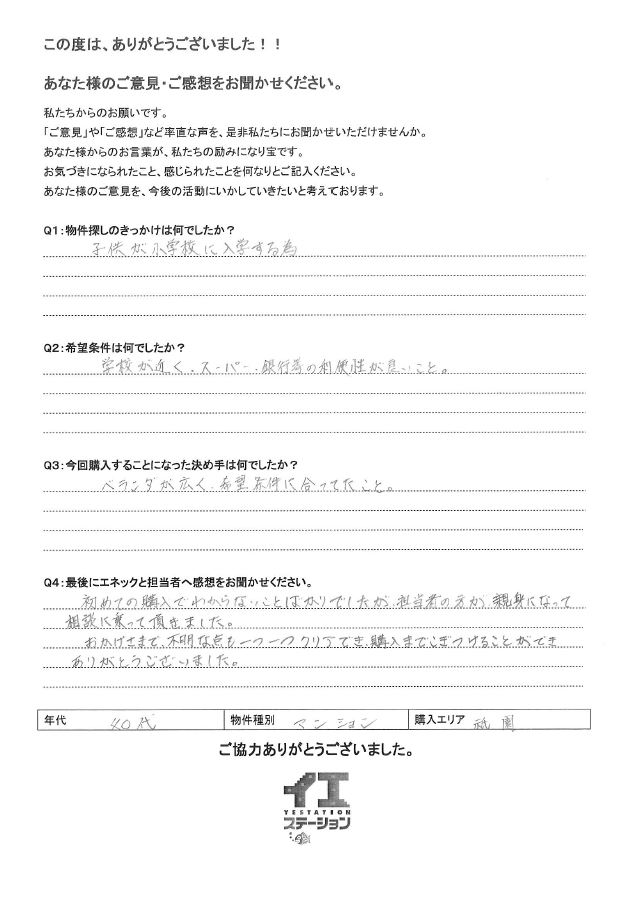 この度は、ありがとうございました！！
あなた様のご意見・ご感想をお聞かせください。
私たちからのお願いです。
「ご意見」や「ご感想」など率直な声を、是非私たちにお聞かせいただけませんか。
あなた様からのお言葉が、私たちの励みになり宝です。
お気づきになられたこと、感じられたことを何なりとご記入ください。
あなた様のご意見を、今後の活動にいかしていきたいと考えております。
Q1：物件探しのきっかけは何でしたか？
子供が小学校に入学する為
Q2：希望条件は何でしたか？
学校が近く、スーパー、銀行等の利便性が良いこと。
Q3：今回購入することになった決め手は何でしたか？
ベランダが広く、希望条件に合ってたこと。
Q4：最後にエネックと担当者へ感想をお聞かせください。
初めての購入でわからないことばかりでしたが、担当者の方が、親身になって
相談に乗って頂きました。
おかげさまで、不明な点も一つ一つクリアでき、購入までこぎつけることができ
ありがとうございました。
年代 40代 物件種別 マンション 購入エリア 祇園
ご協力ありがとうございました。
イエ
YESTATION
ステーション